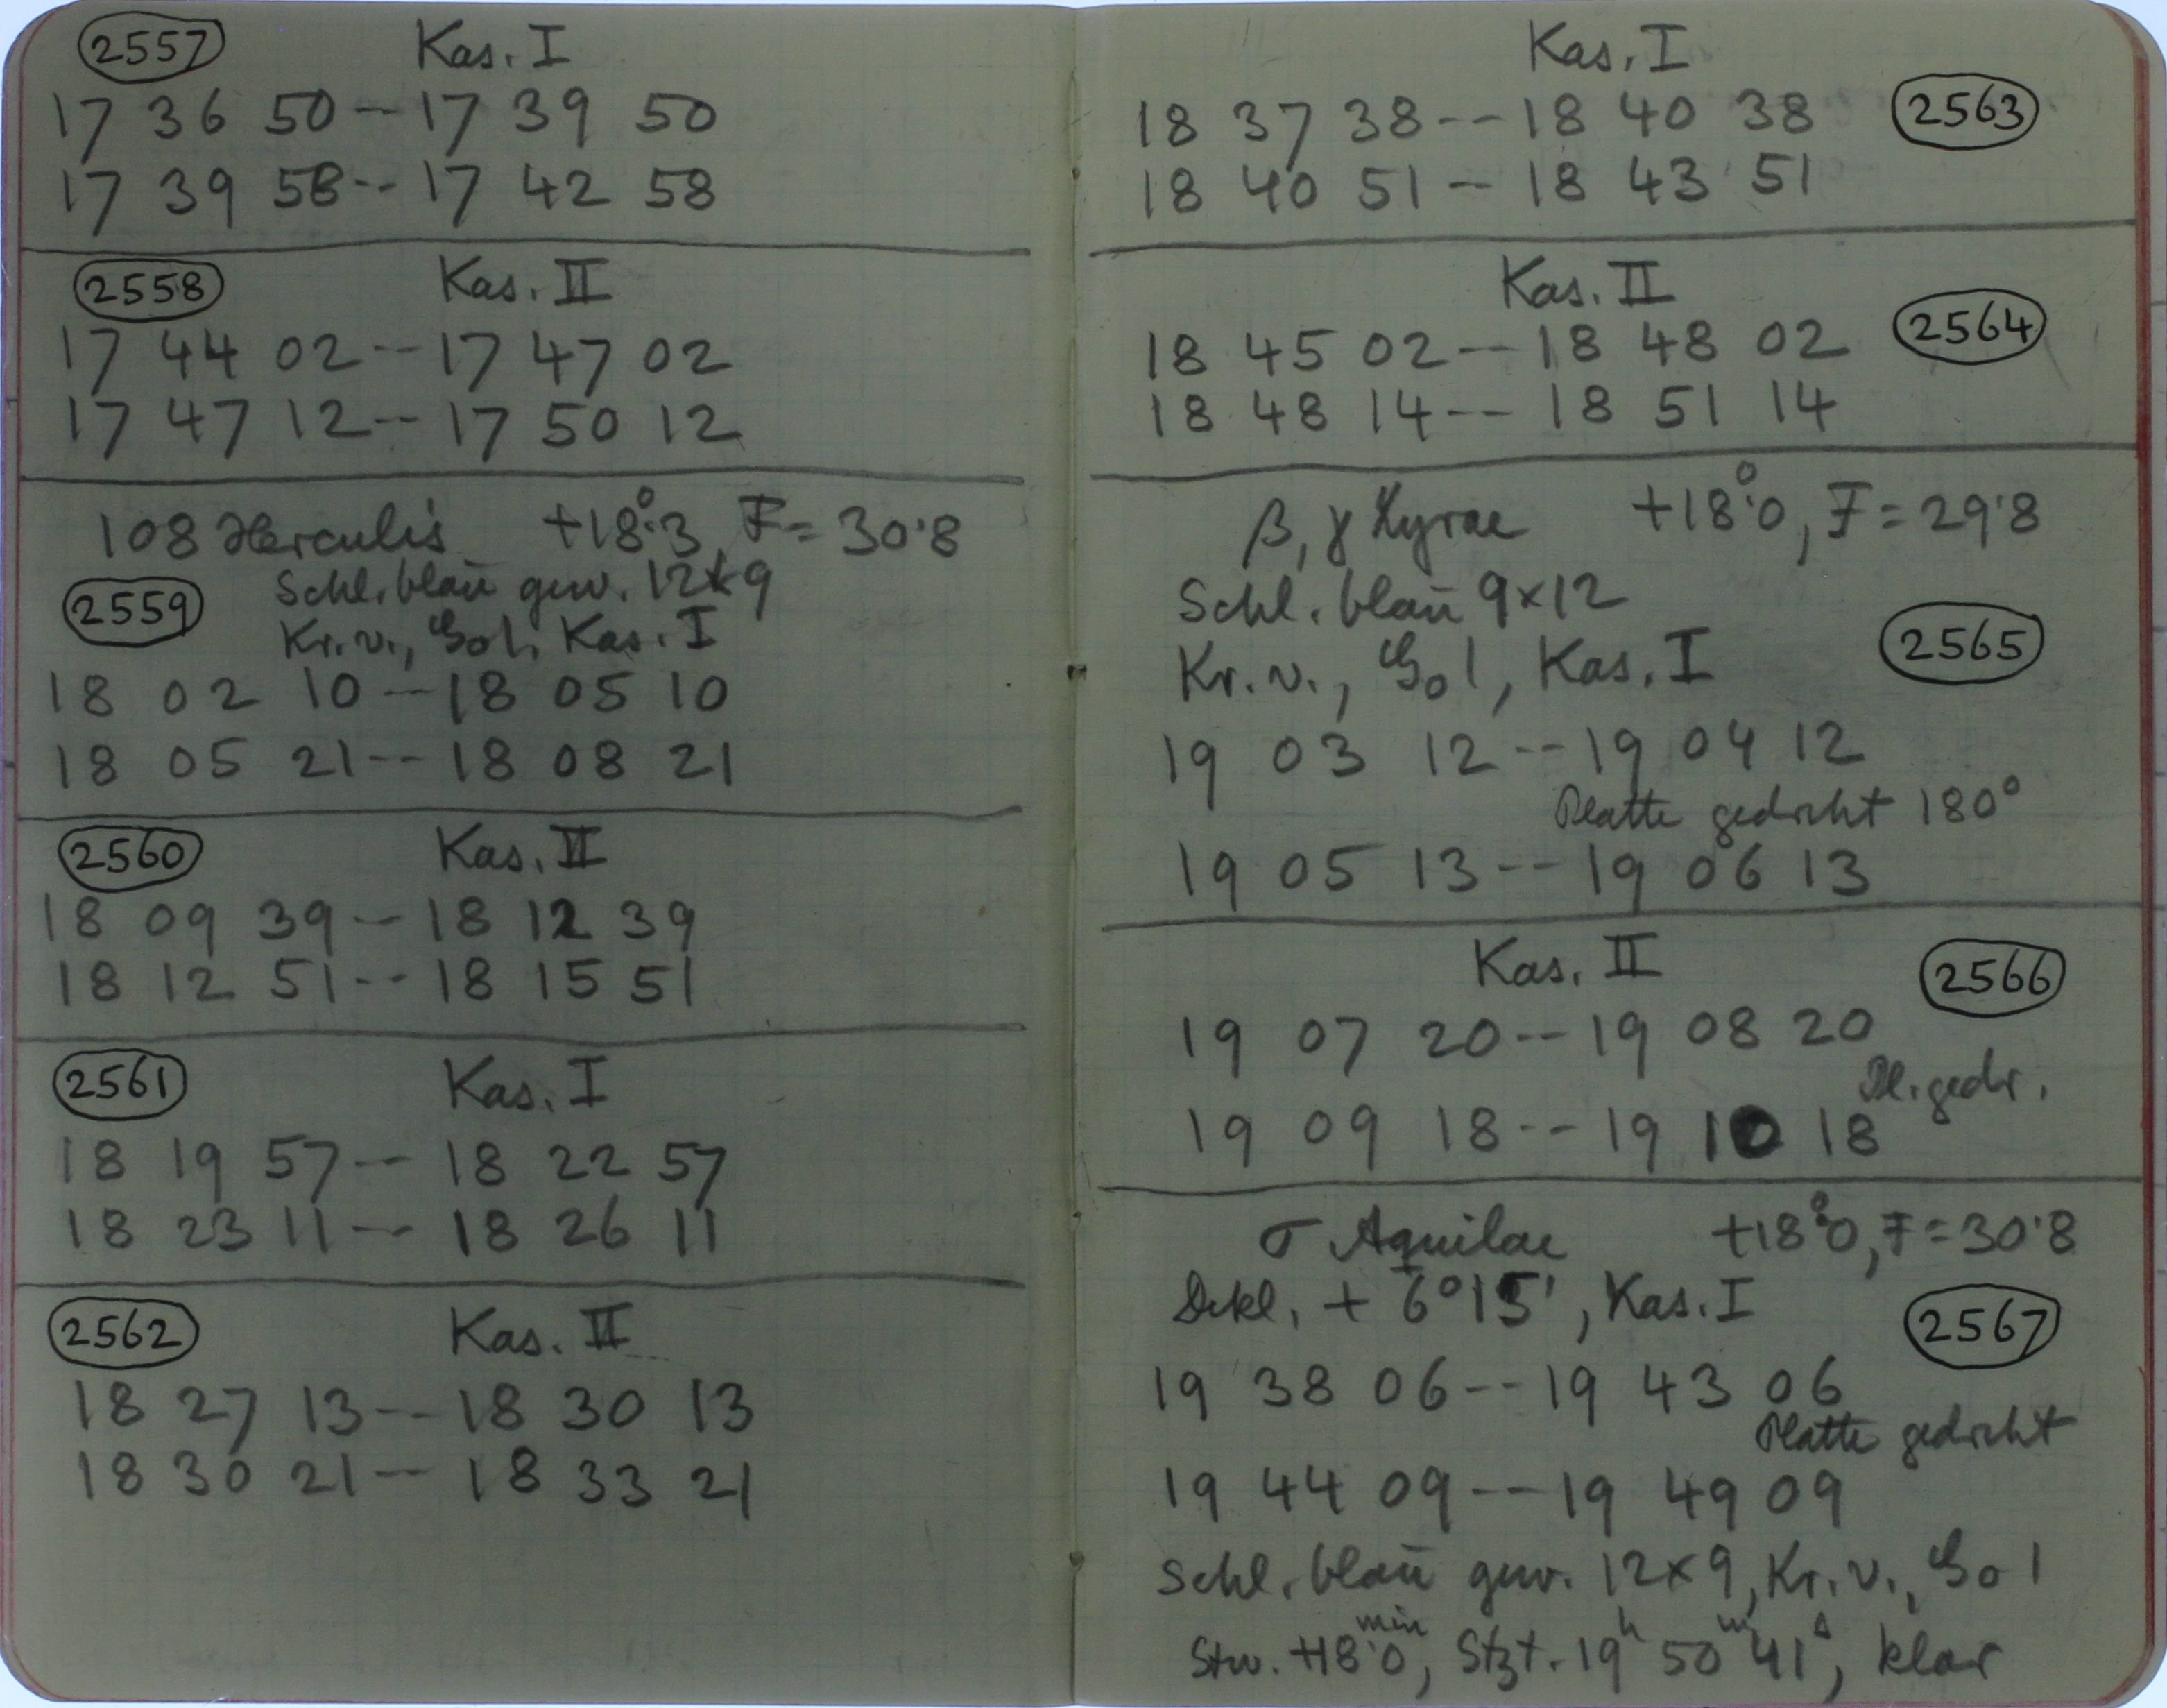 2557 Kas. I
17 36 50 -- 17 39 50
17 39 58 -- 17 42 58
2558 Kas. II
17 44 02 -- 17 47 02
17 47 12 -- 17 50 12
108 Herculis +18°.3, F = 30.8
Schl. blau gew. 12x9
2559 Kr. v., Kas. I
18 02 10 -- 18 05 10
18 05 21 -- 18 08 21
2560 Kas. II
18 09 39 -- 18 12 39
18 12 51 -- 18 15 51
2561 Kas. I
18 19 57 -- 18 22 57
18 23 11 -- 18 26 11
2562 Kas. II
18 27 13 -- 18 30 13
18 30 21 -- 18 33 21
Kas. I
18 37 38 -- 18 40 38 2563
18 40 51 -- 18 43 51
Kas. II
18 45 02 -- 18 48 02 2564
18 48 14 -- 18 51 14
β, γ Lyrae +18°.0, F = 29.8
Schl. blau 9x12
Kr. v., Kas. I 2565
19 03 12 -- 19 04 12
Platte gedreht 180°
19 05 13 -- 19 06 13
Kas. II 2566
19 07 20 -- 19 08 20
Pl. gedr.
19 09 18 -- 19 10 18
σ Aquilae +18°.0, F = 30.8
Dekl. + 6°15', Kas. I 2567
19 38 06 -- 19 43 06
Platte gedreht
19 44 09 -- 19 49 09
Schl. blau gew. 12x9, Kr. v.,
Stw. +18.0 min, Stzt. 19h 50m 41s, klar